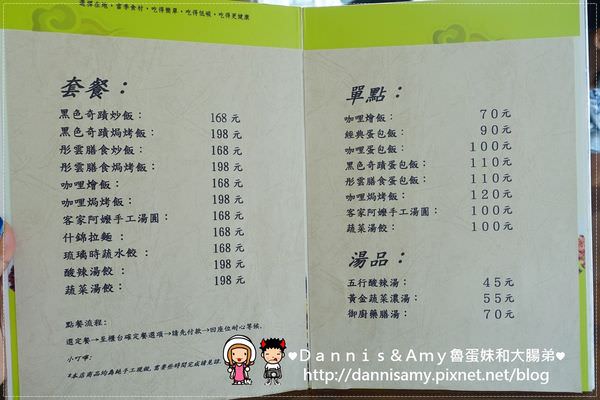 選擇在地，當季食材，吃得簡單，吃得低碳，吃得更健康
套餐：
黑色奇蹟炒飯： 168 元
黑色奇蹟焗烤飯： 198 元
彤雲膳食炒飯： 168 元
彤雲膳食焗烤飯： 198 元
咖哩燴飯： 168 元
咖哩焗烤飯： 198 元
客家阿嬤手工湯圓： 168 元
什錦拉麵： 168 元
琉璃時蔬水餃： 168 元
酸辣湯餃： 198 元
蔬菜湯餃： 198 元
點餐流程：
選定餐→至櫃台確定餐選項→請先付款→回座位耐心等候。
小叮嚀：
*本店商品均為純手工現做，需要些時間完成請見諒。
單點：
咖哩燴飯： 70元
經典蛋包飯： 90元
咖哩蛋包飯： 100元
黑色奇蹟蛋包飯： 110元
彤雲膳食蛋包飯： 110元
咖哩焗烤飯： 120元
客家阿嬤手工湯圓： 100元
蔬菜湯餃： 100元
湯品：
五行酸辣湯： 45元
黃金蔬菜濃湯： 55元
御廚藥膳湯： 70元
♥Dannis&Amy魯蛋妹和大腸弟♥
http://dannisamy.pixnet.net/blog